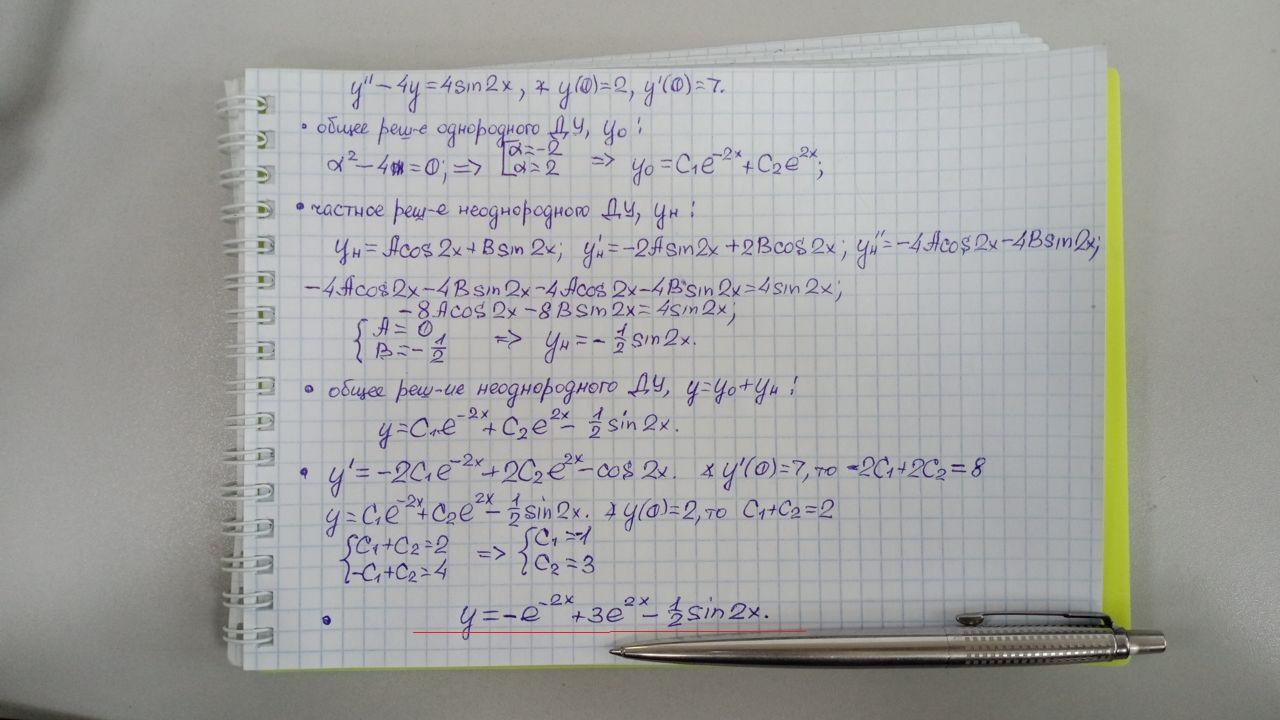 y'' − 4y = 4sin2x, * y(0)=2, y'(0)=7.
• общее реш-е однородного ДУ, y₀:
α² − 4 = 0; => [α=−2 α=2 => y₀ = C₁e^(−2x) + C₂e^(2x);
• частное реш-е неоднородного ДУ, yн:
yн = Acos2x + Bsin2x; y'н = −2Asin2x + 2Bcos2x; yн'' = −4Acos2x − 4Bsin2x;
−4Acos2x − 4Bsin2x − 4Acos2x − 4Bsin2x = 4sin2x;
−8Acos2x − 8Bsin2x = 4sin2x;
{A = 0 B = −1/2 => yн = −1/2 sin2x.
• общее реш-ие неоднородного ДУ, y=y₀+yн:
y = C₁e^(−2x) + C₂e^(2x) − 1/2 sin2x.
• y' = −2C₁e^(−2x) + 2C₂e^(2x) − cos2x. * y'(0)=7, то −2C₁+2C₂=8
y = C₁e^(−2x) + C₂e^(2x) − 1/2 sin2x. * y(0)=2, то C₁+C₂=2
{C₁+C₂=2 −C₁+C₂=4 => {C₁=−1 C₂=3
• y = −e^(−2x) + 3e^(2x) − 1/2 sin2x.